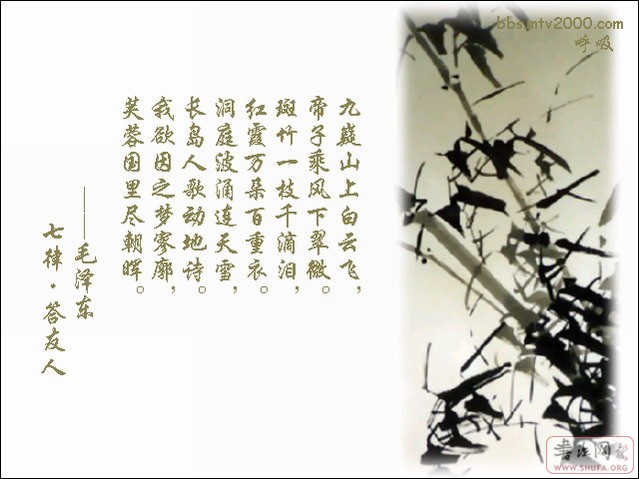 bbs.mtv2000.com
呼吸
九嶷山上白云飞，
帝子乘风下翠微。
斑竹一枝千滴泪，
红霞万朵百重衣。
洞庭波涌连天雪，
长岛人歌动地诗。
我欲因之梦寥廓，
芙蓉国里尽朝晖。
——毛泽东
七律·答友人
书法网
WWW.SHUFA.ORG